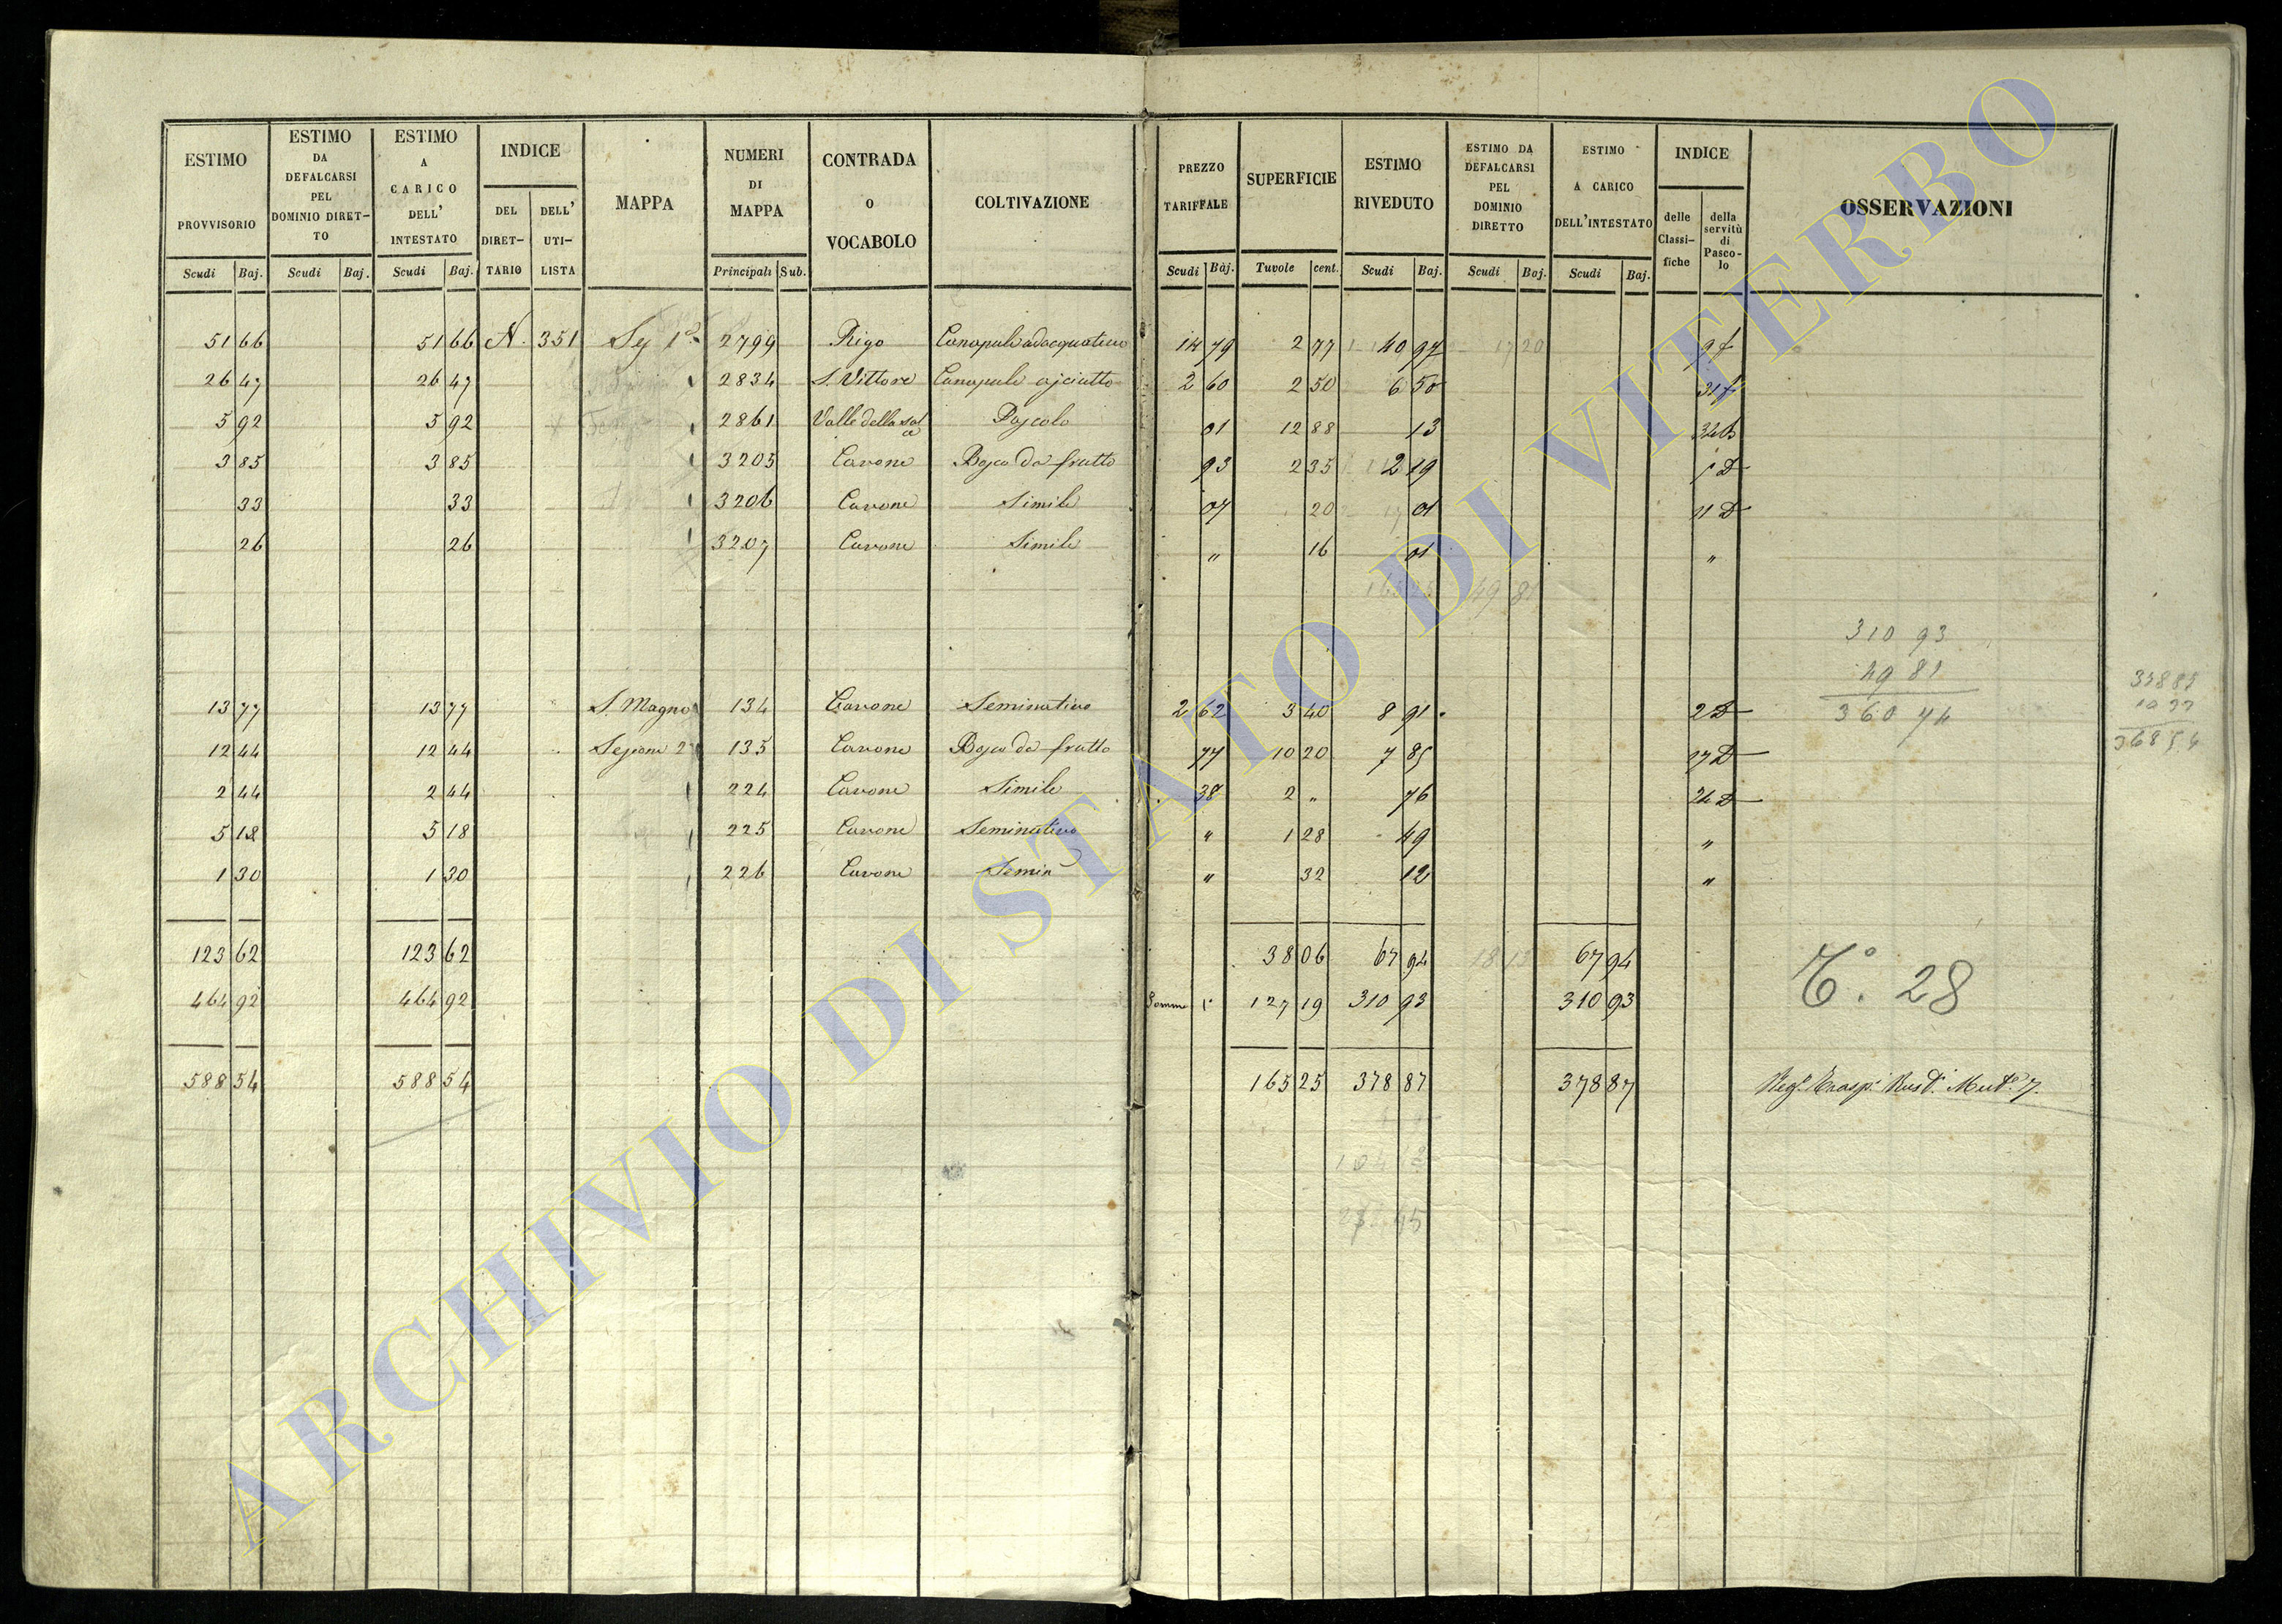 ESTIMO PROVVISORIO Scudi Baj.
ESTIMO DA DEFALCARSI PEL DOMINIO DIRET-TO Scudi Baj.
ESTIMO A CARICO DELL' INTESTATO Scudi Baj.
INDICE DEL DIRET-TARIO DELL' UTI-LISTA
MAPPA
NUMERI DI MAPPA Principali Sub.
CONTRADA O VOCABOLO
COLTIVAZIONE
PREZZO TARIFFALE Scudi Baj.
SUPERFICIE Tavole cent.
ESTIMO RIVEDUTO Scudi Baj.
ESTIMO DA DEFALCARSI PEL DOMINIO DIRETTO Scudi Baj.
ESTIMO A CARICO DELL'INTESTATO Scudi Baj.
INDICE delle Classi-fiche della servitù di Pasco-lo
OSSERVAZIONI
51 66 51 66 N. 351 Sez 1ª 2799 Rigo Canapule adacquativo 14 79 2 77 40 97 17 20 9 f
26 47 26 47 2834 S. Vittore Canapule asciutto 2 60 2 50 6 50 31 f
5 92 5 92 2861 Valle della Salce Pascolo 01 12 88 13
3 85 3 85 3205 Cavone Bosco da frutto 93 2 35 2 19 D
33 33 3206 Cavone Simile 07 20 01 11 D
26 26 3207 Cavone Simile " 16 01 "
49 81
310 93
49 81
360 74
13 77 13 77 S. Magno 134 Cavone Seminativo 2 62 3 40 8 91 2 D
12 44 12 44 Sezione 2ª 135 Cavone Bosco da frutto 77 10 20 7 85 17 D
2 44 2 44 224 Cavone Simile 38 2 " 76 24 D
5 18 5 18 225 Cavone Seminativo " 1 28 49 "
1 30 1 30 226 Cavone Semin " 32 12 "
123 62 123 62 38 06 67 94 18 13 67 94
464 92 464 92 Somma 127 19 310 93 310 93
T.° 28
588 54 588 54 165 25 378 87 378 87 Reg.° Trasp. Rust. Mut.e 7.
ARCHIVIO DI STATO DI VITERBO